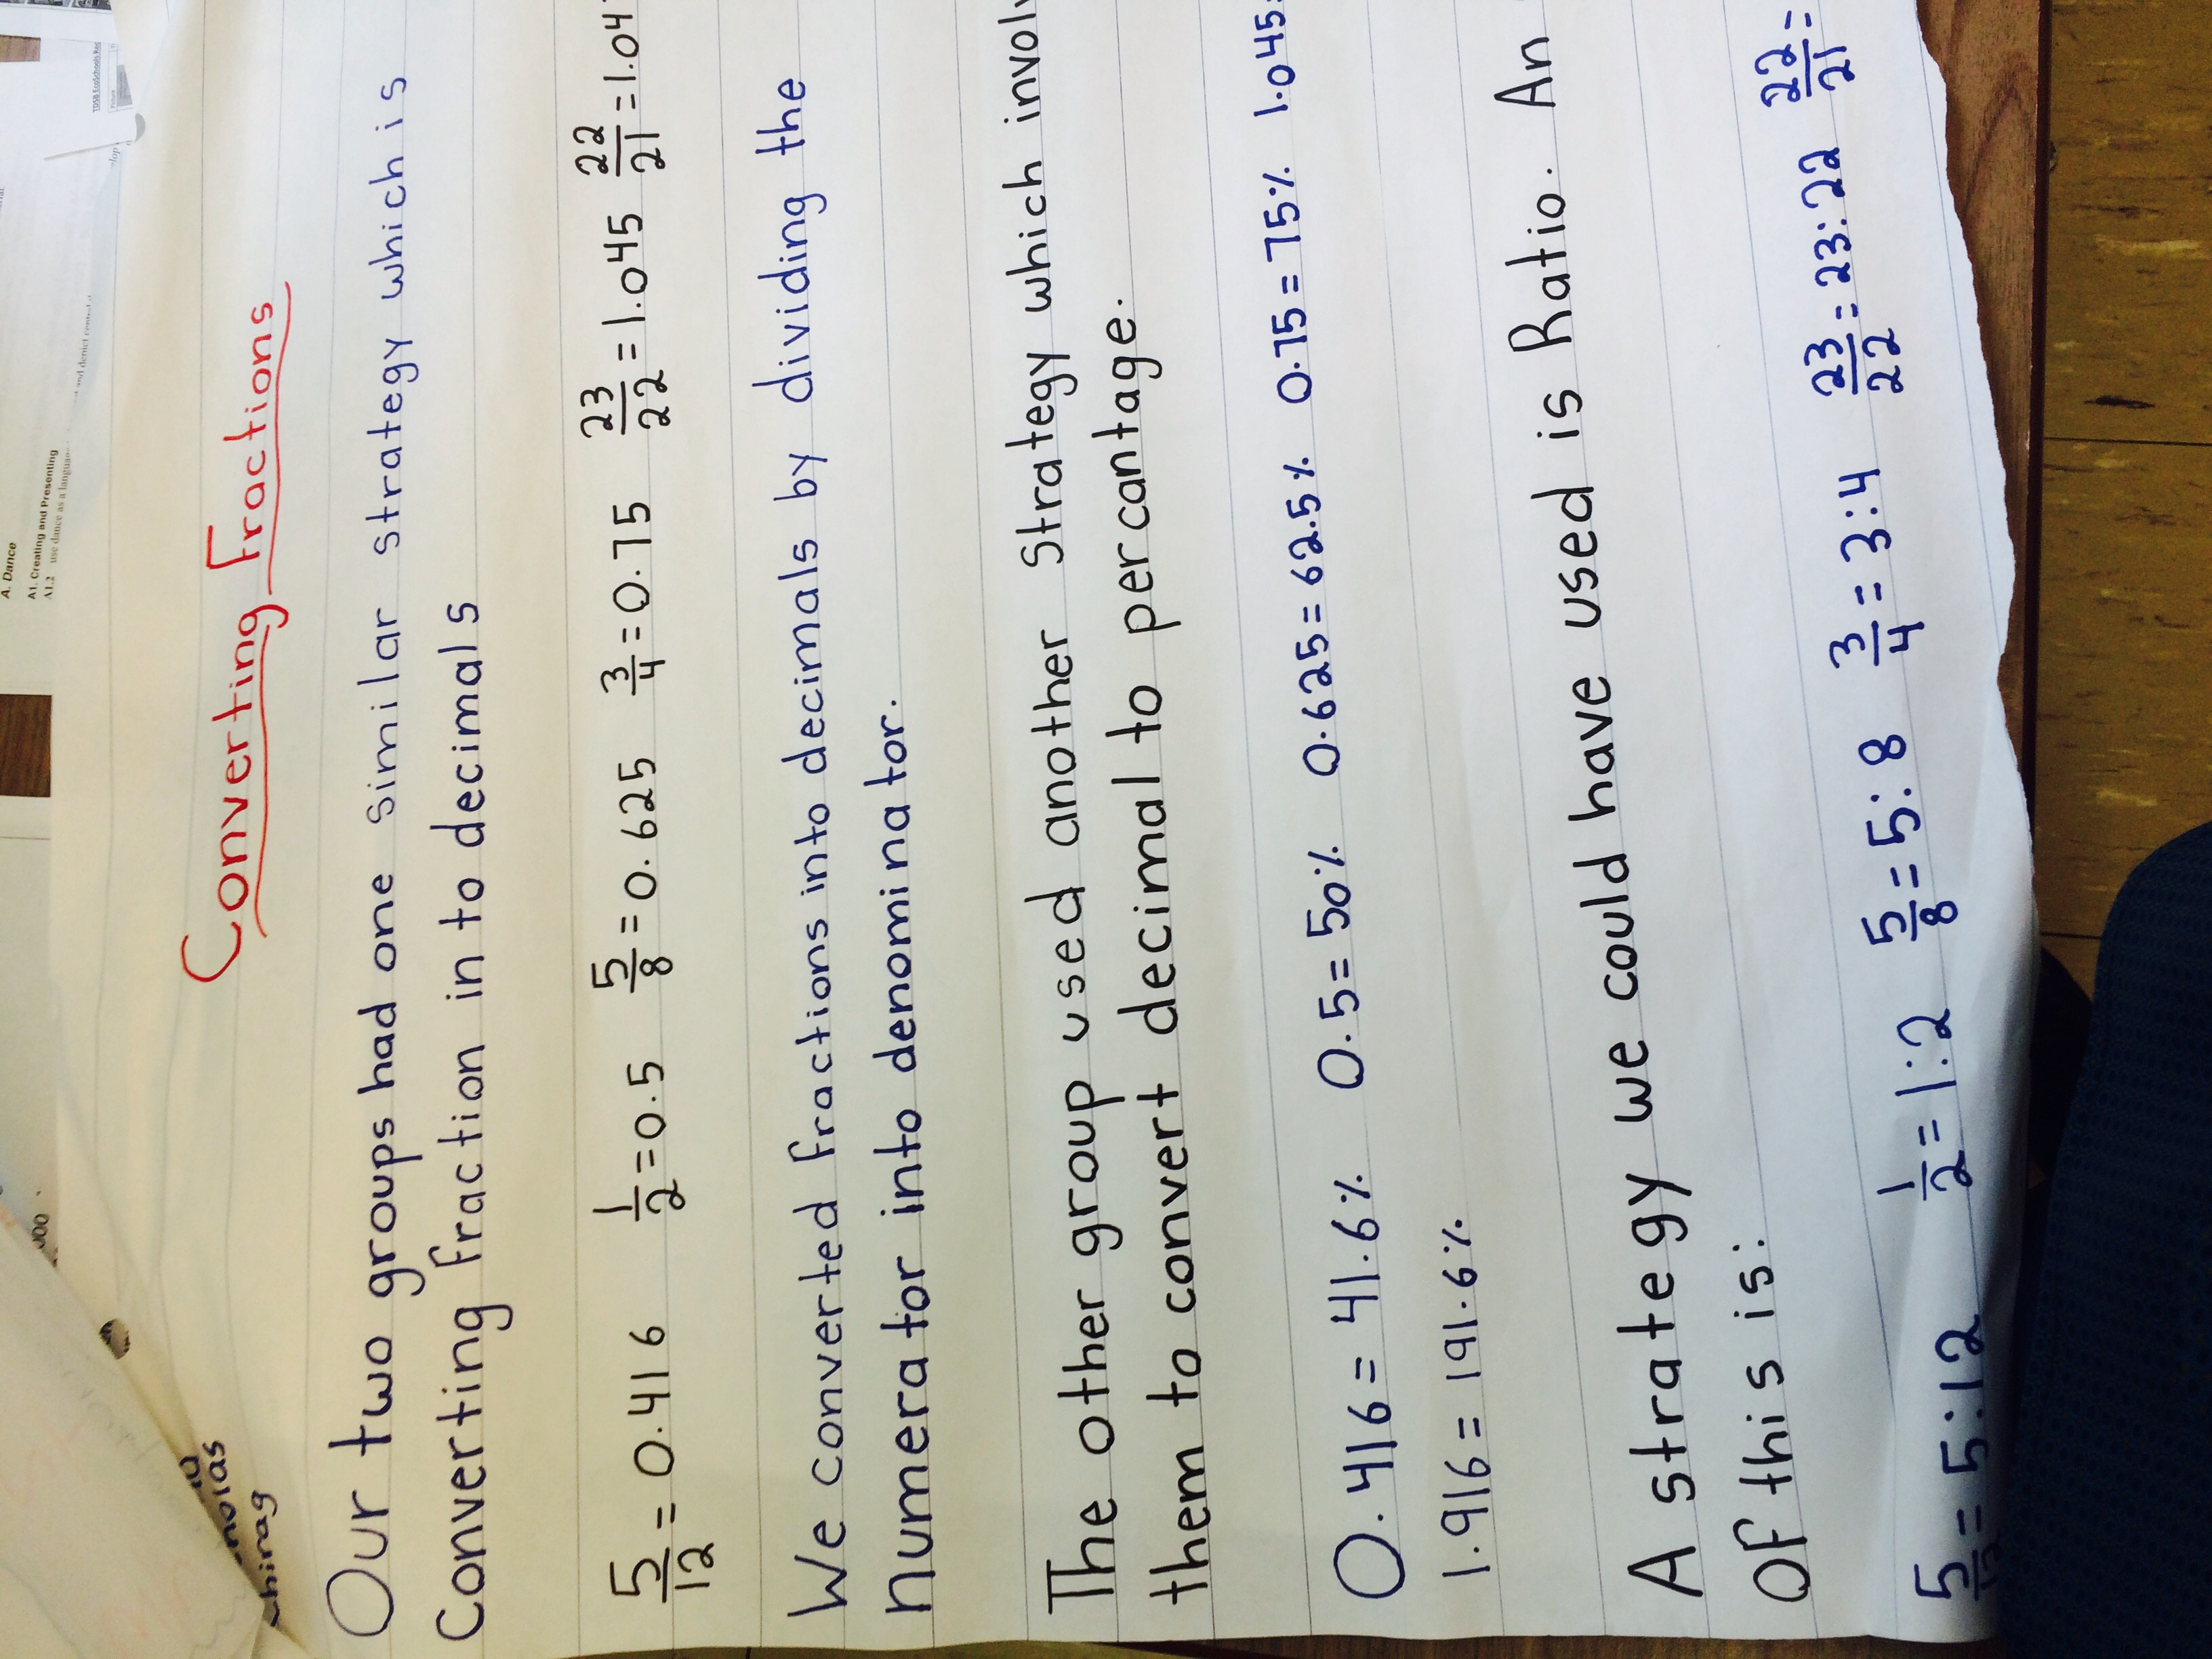 Converting Fractions
Our two groups had one similar strategy which is
Converting fraction in to decimals
5/12 = 0.416 1/2 = 0.5 5/8 = 0.625 3/4 = 0.75 23/22 = 1.045 22/21 = 1.04
We converted fractions into decimals by dividing the
numerator into denominator.
The other group used another strategy which involv
them to convert decimal to percantage.
0.416 = 41.6% 0.5 = 50% 0.625 = 62.5% 0.75 = 75% 1.045
1.916 = 191.6%
A strategy we could have used is Ratio. An
of this is:
5/12 = 5:12 1/2 = 1:2 5/8 = 5:8 3/4 = 3:4 23/22 = 23:22 22/21 =
A. Dance
A1. Creating and Presenting
A1.2 use dance as a langua
TDSB EcoSchools Rec
Picture